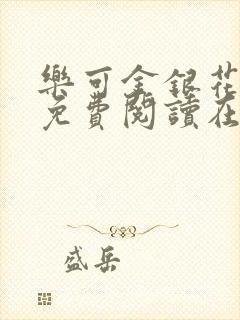 樂可金銀花
免費閱讀在
盛岳